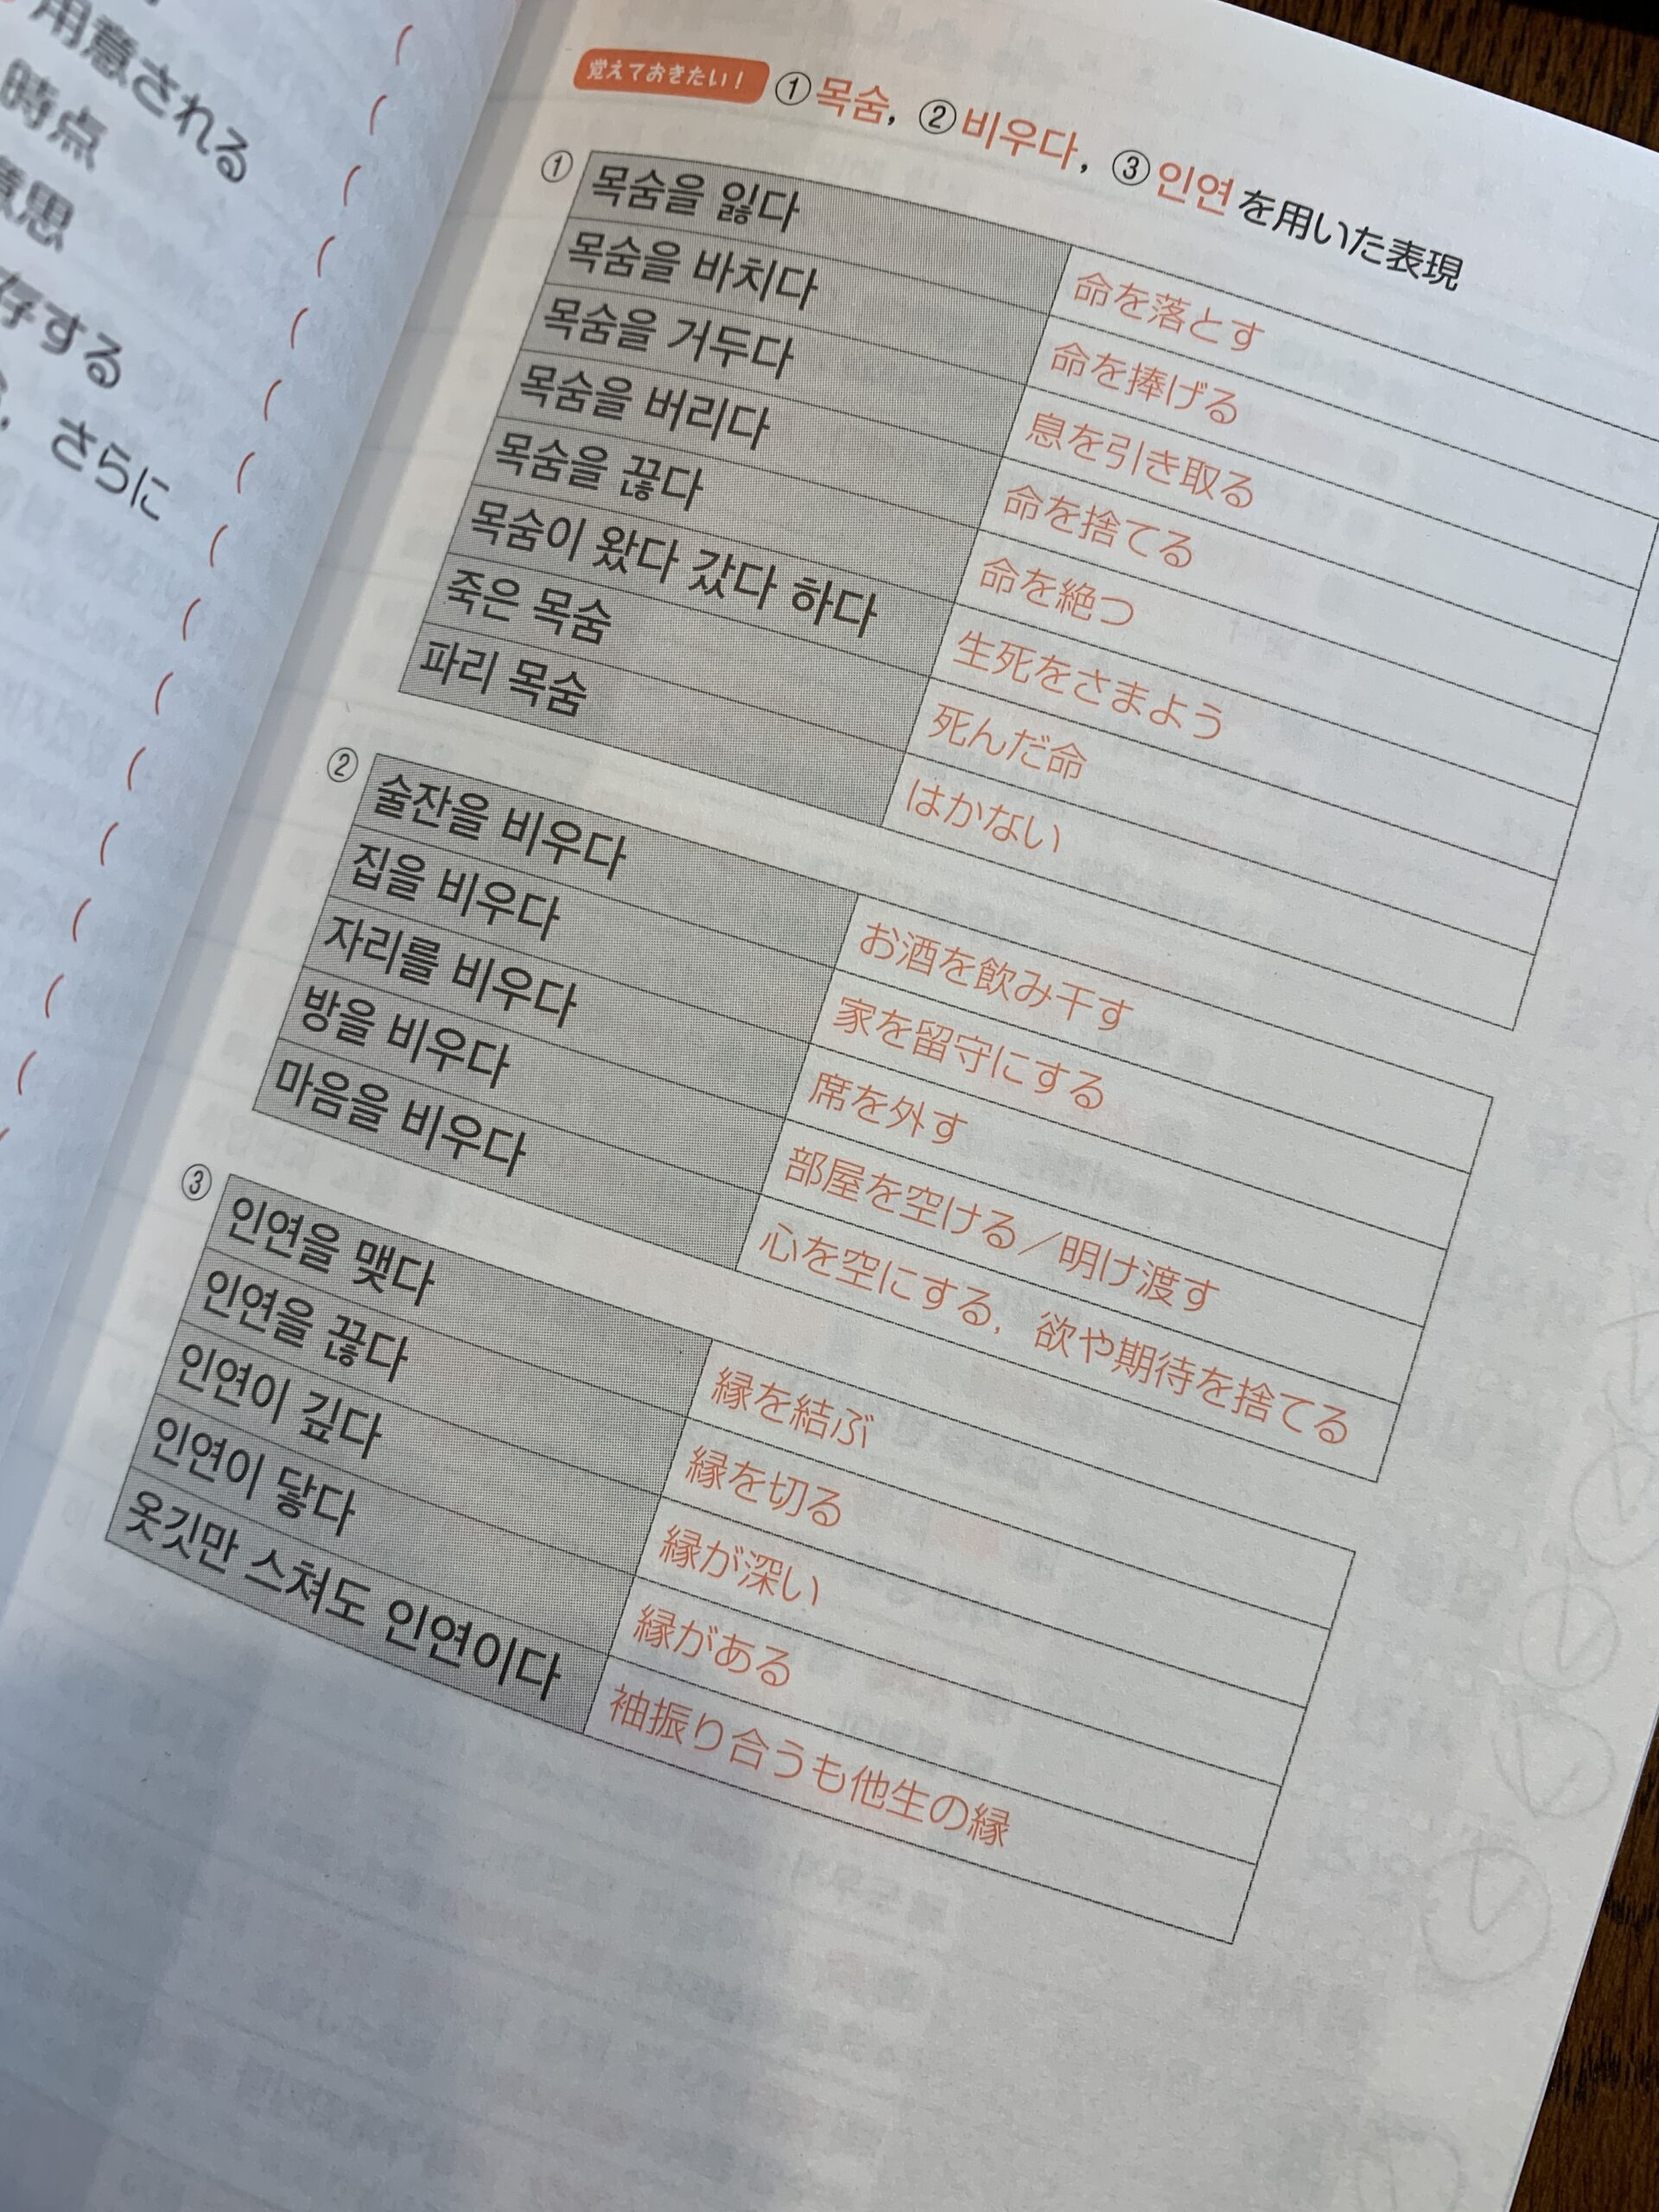 用意される
時点
意思
存する
さらに
覚えておきたい！ ①목숨, ②비우다, ③인연を用いた表現
①
목숨을 잃다 命を落とす
목숨을 바치다 命を捧げる
목숨을 거두다 息を引き取る
목숨을 버리다 命を捨てる
목숨을 끊다 命を絶つ
목숨이 왔다 갔다 하다 生死をさまよう
죽은 목숨 死んだ命
파리 목숨 はかない
②
술잔을 비우다 お酒を飲み干す
집을 비우다 家を留守にする
자리를 비우다 席を外す
방을 비우다 部屋を空ける／明け渡す
마음을 비우다 心を空にする，欲や期待を捨てる
③
인연을 맺다 縁を結ぶ
인연을 끊다 縁を切る
인연이 깊다 縁が深い
인연이 닿다 縁がある
옷깃만 스쳐도 인연이다 袖振り合うも他生の縁